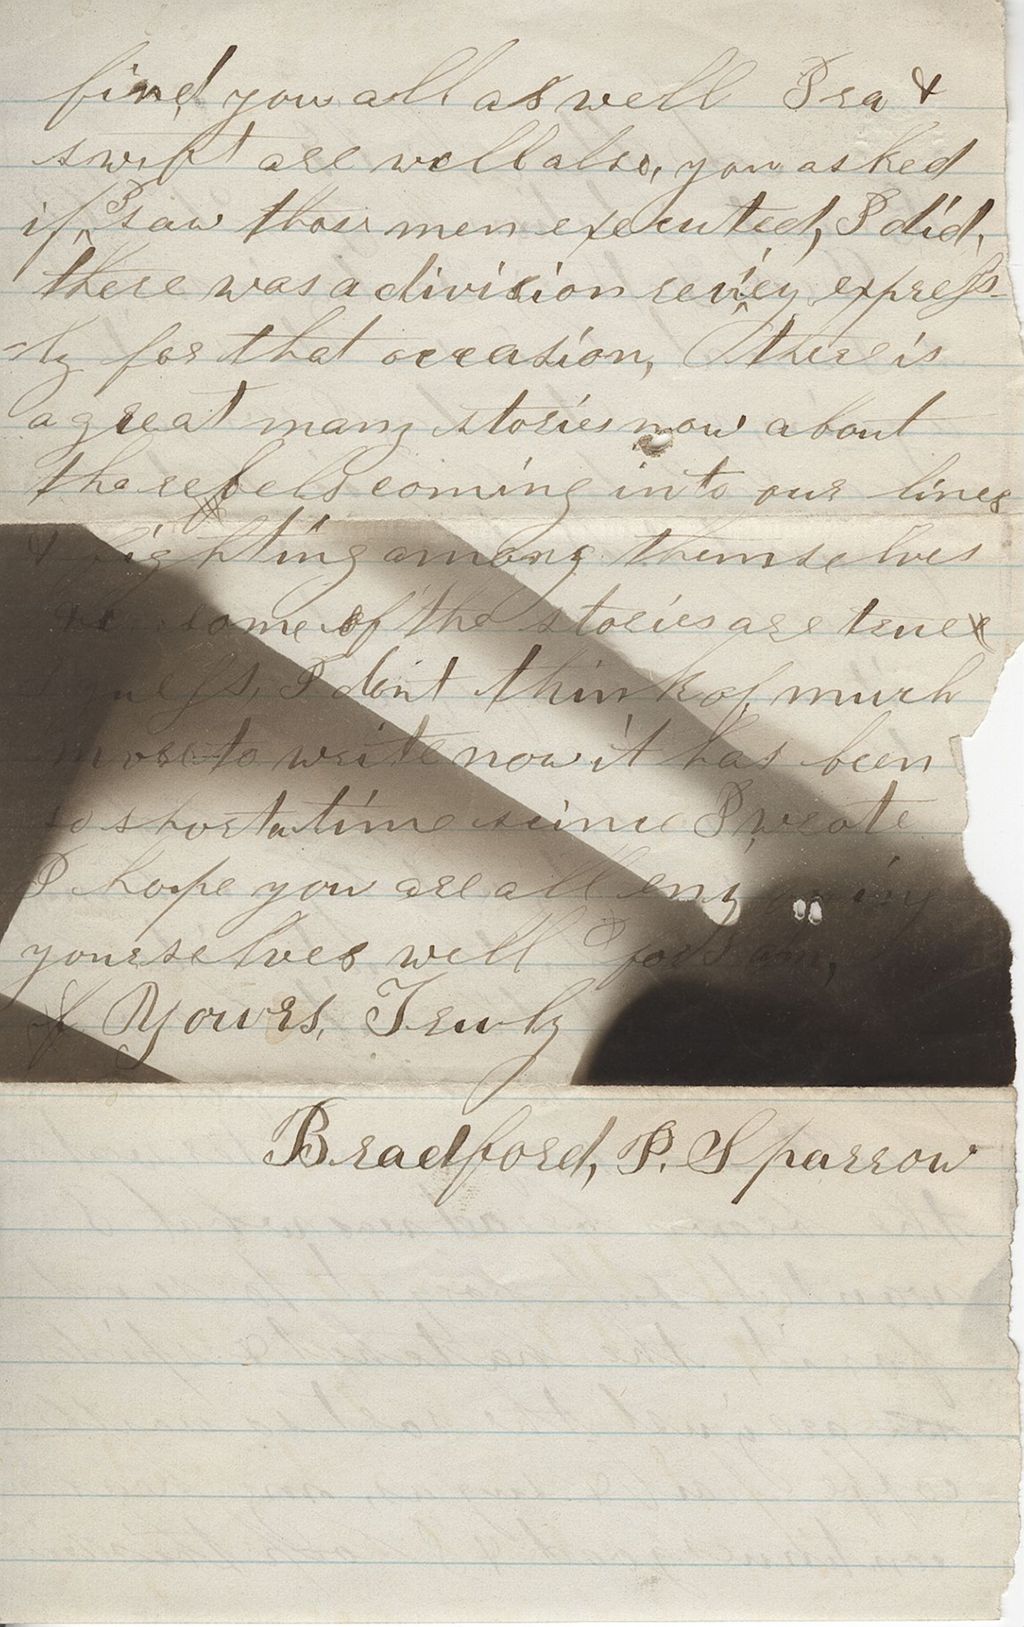 find you all as well Ira &
swift are well also, you asked
if I saw those men executed, I did,
there was a division reviey express-
-ly for that occasion, there is
a great many stories now about
the rebels coming into our lines
& fighting among themselves
some of the stories are true
I guess, I don't think of much
more to write now it has been
so short a time since I wrote
I hope you are all enjoying
yourselves well I for I am,
Yours, Truly
Bradford, P. Sparrow